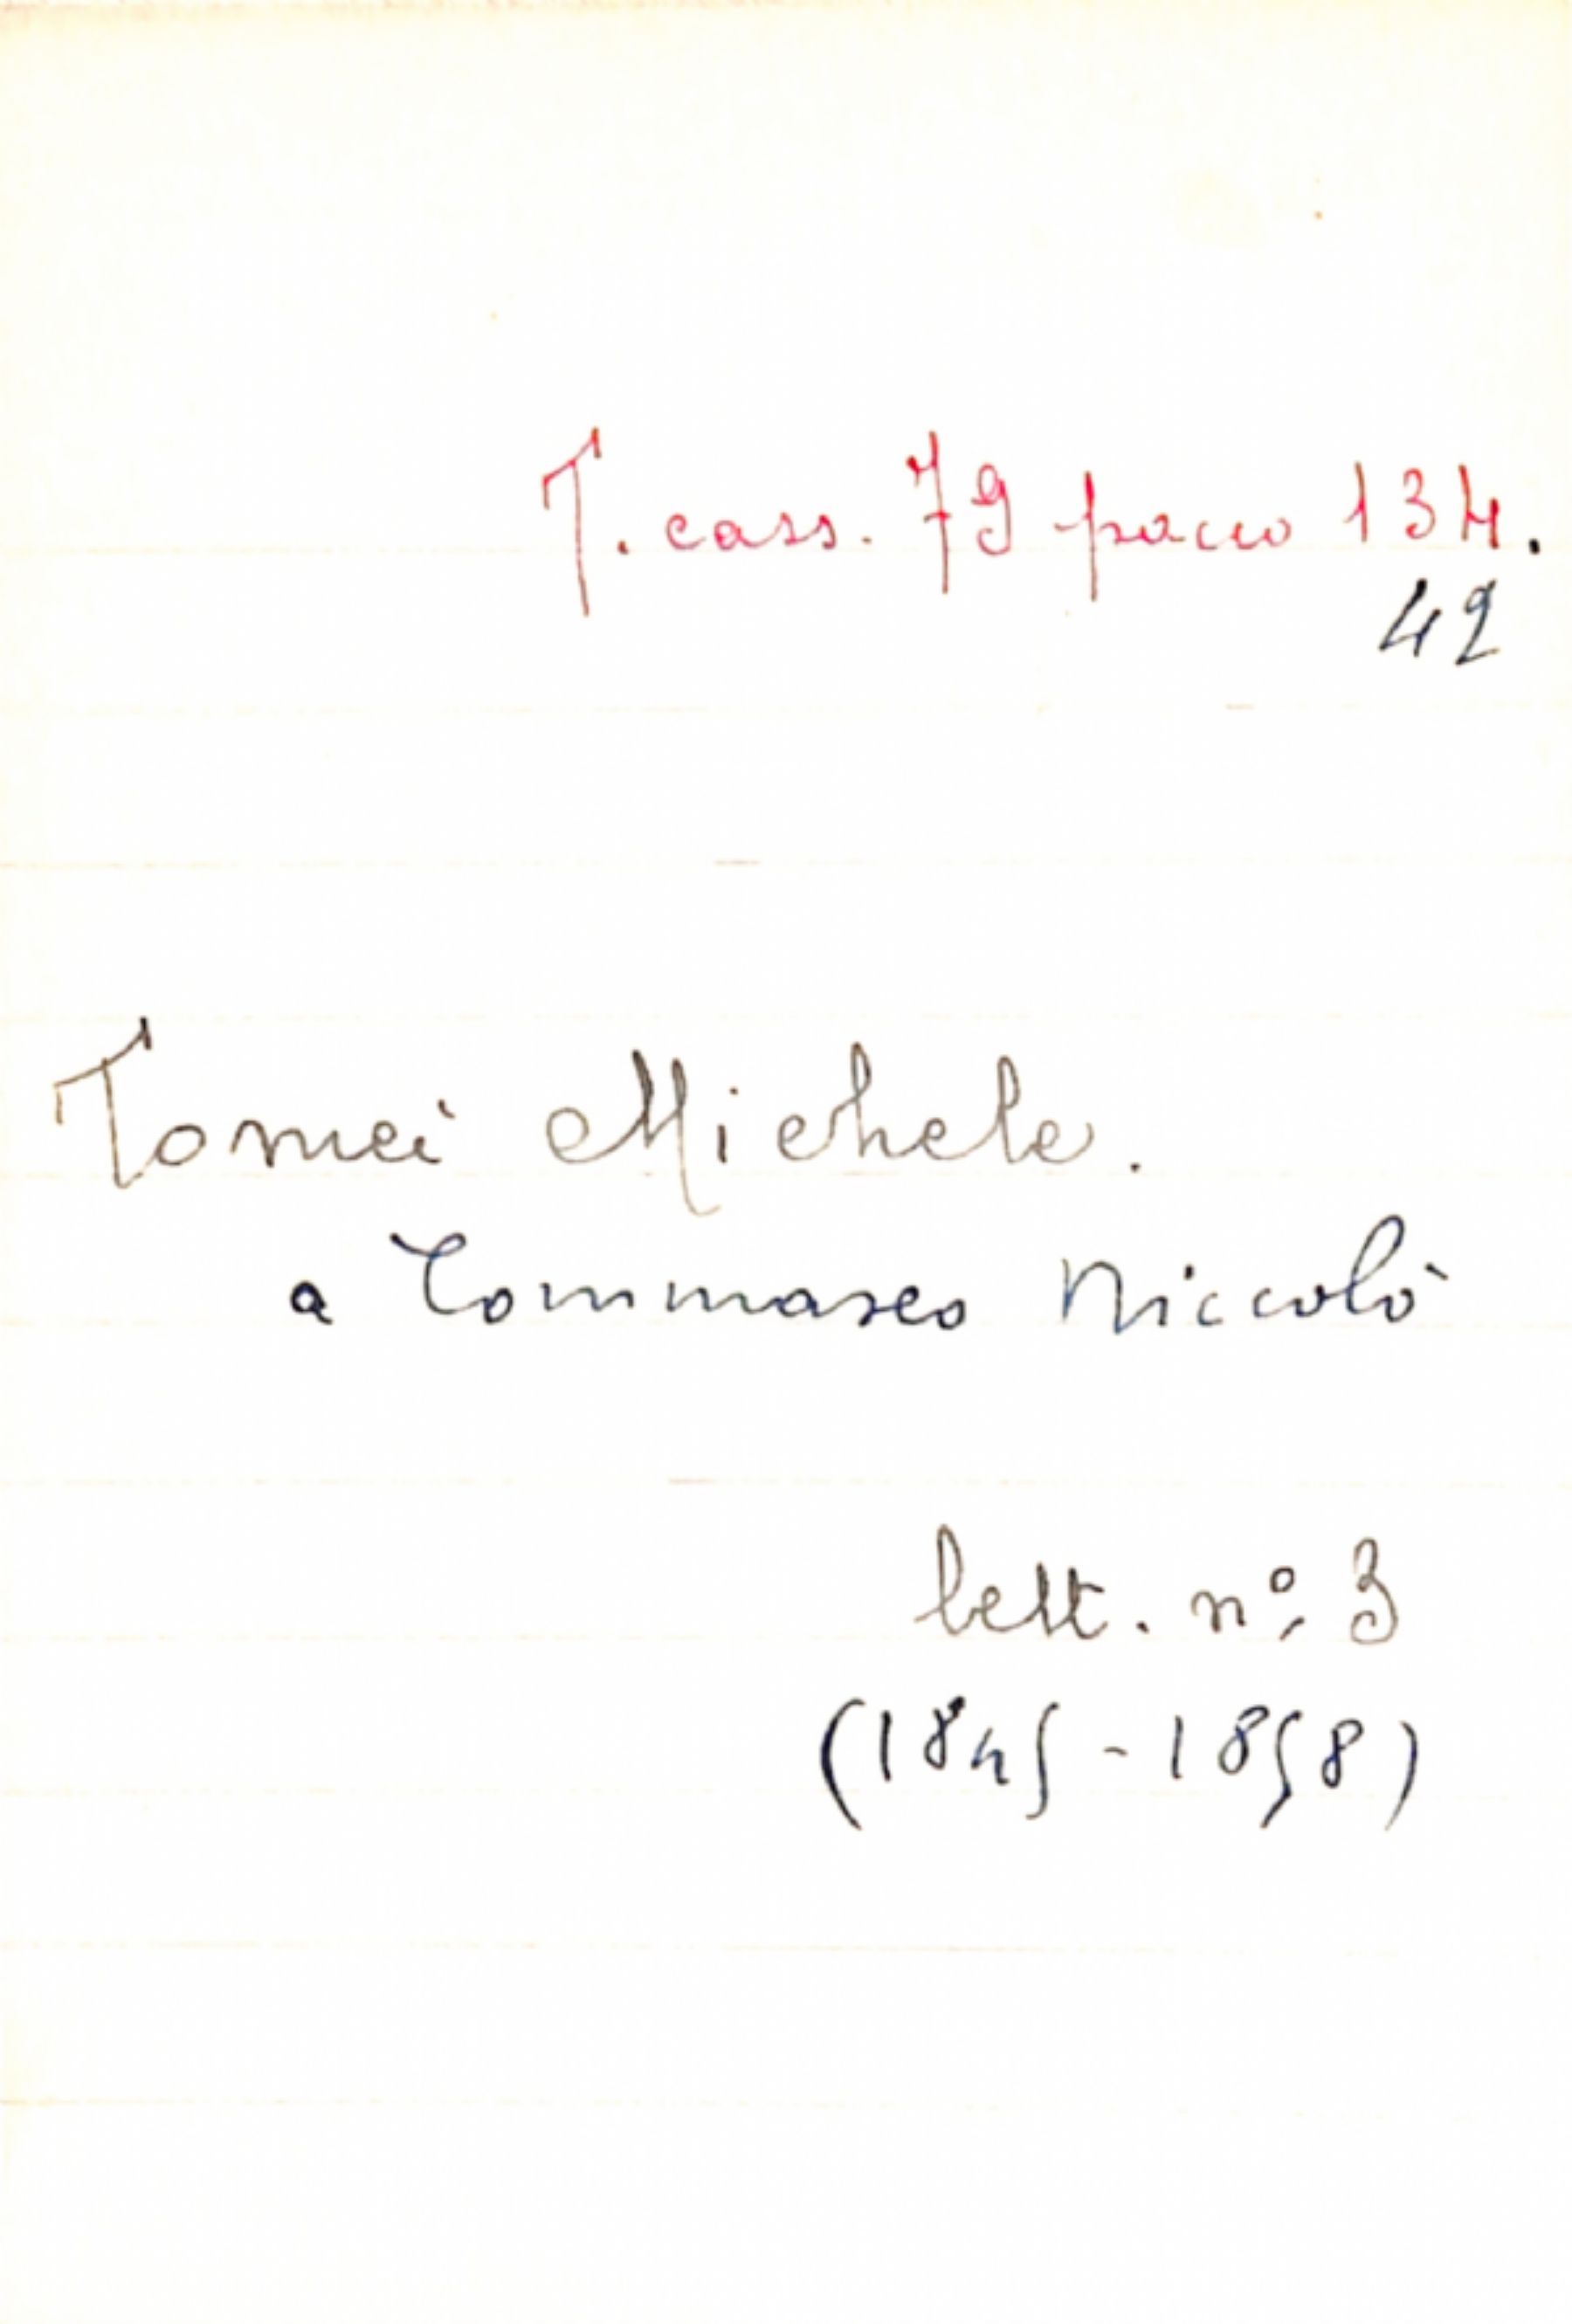 T. cass. 79 pacco 134.
42
Tomei Michele.
a Tommaseo Niccolò
lett. nº 3
(1845 - 1858)